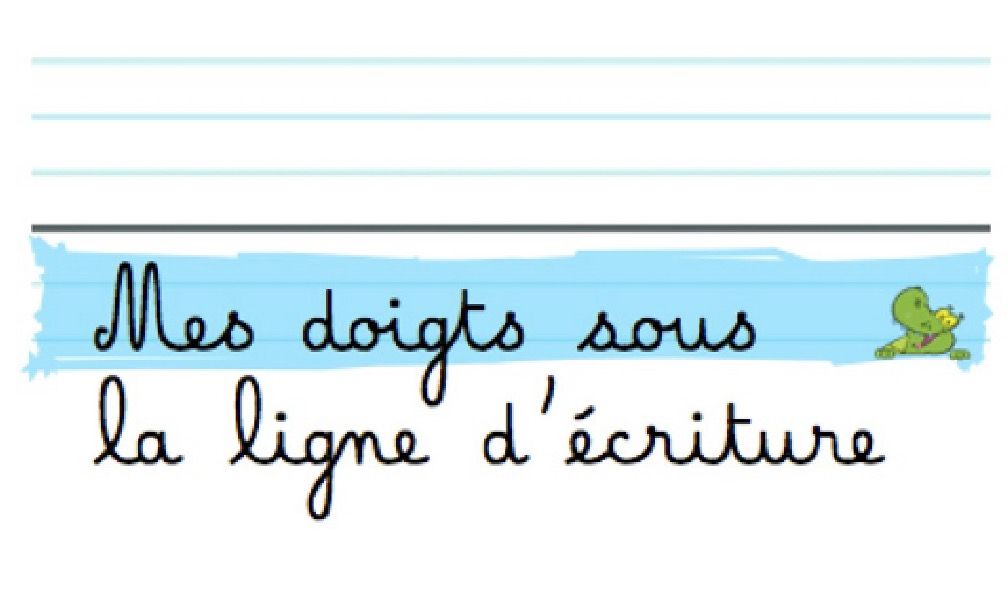 Mes doigts sous
la ligne d'écriture